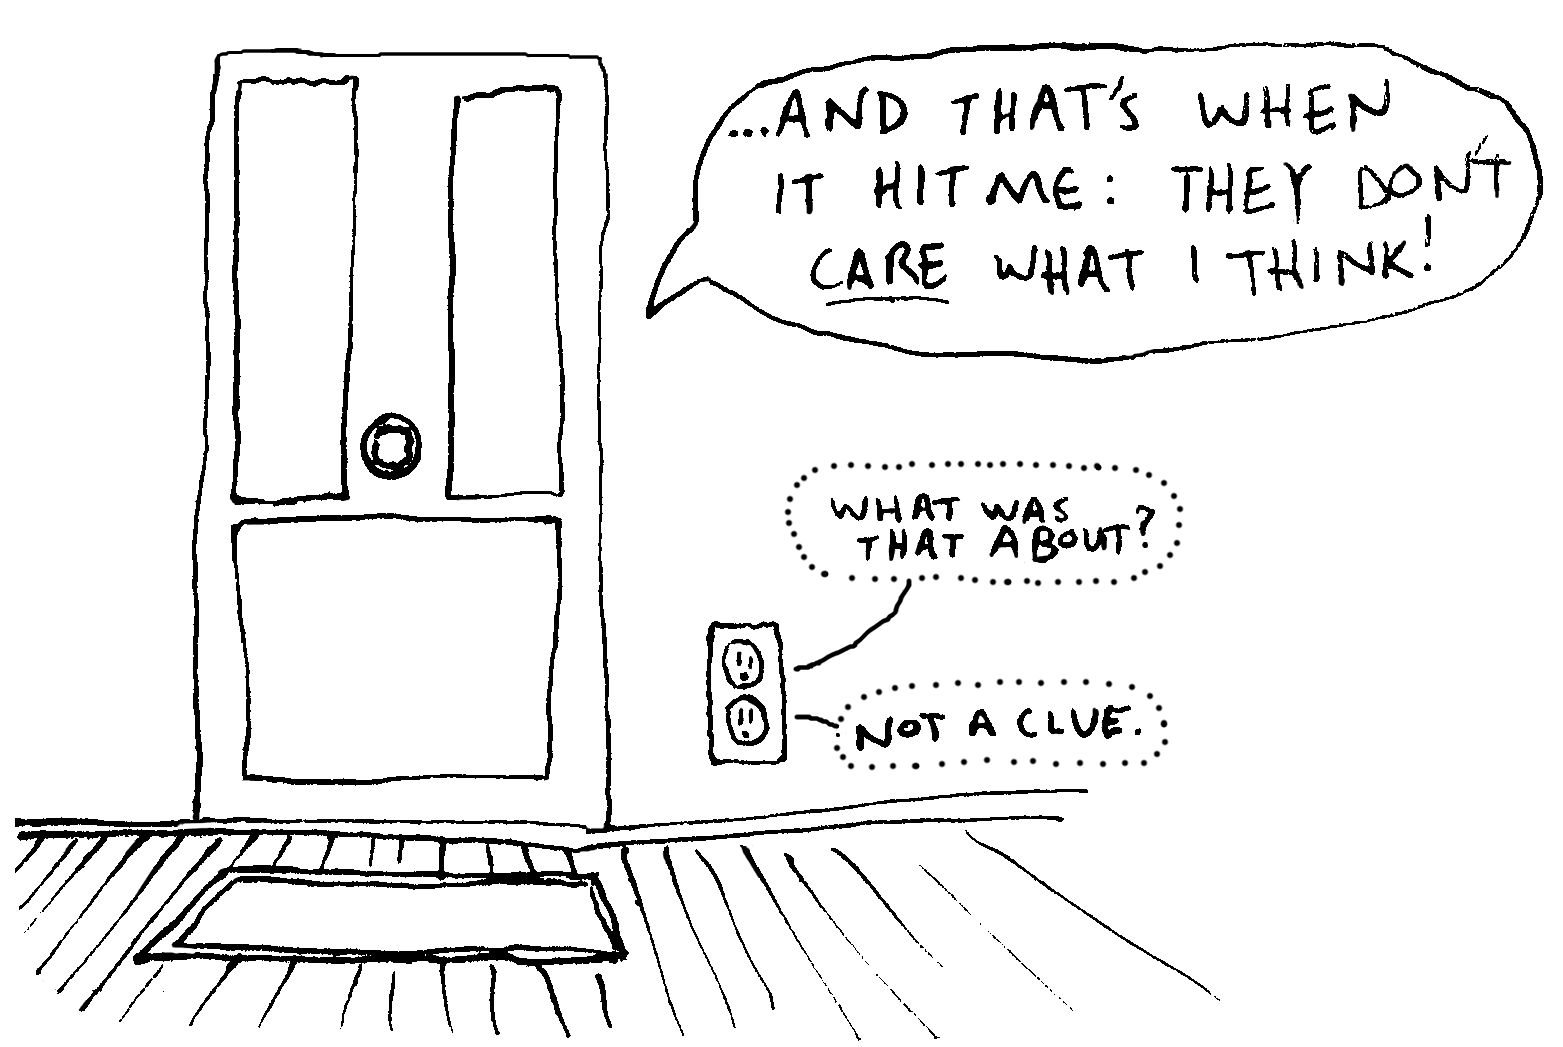 ...AND THAT'S WHEN
IT HIT ME: THEY DON'T
CARE WHAT I THINK!
WHAT WAS
THAT ABOUT?
NOT A CLUE.